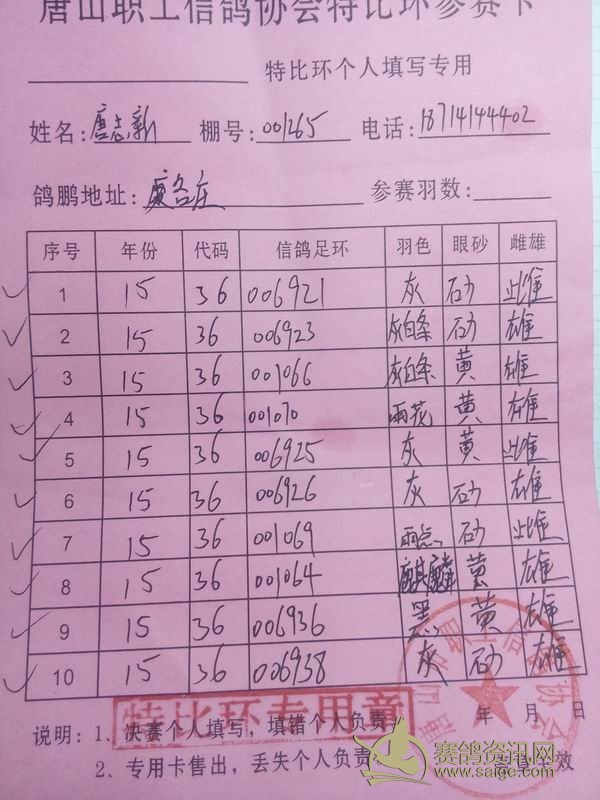 唐山职工信鸽协会特比环参赛卡
特比环个人填写专用
姓名:唐志新 棚号:001265 电话:18714144402
鸽鹏地址:廉各庄 参赛羽数:
序号 年份 代码 信鸽足环 羽色 眼砂 雌雄
1 15 36 006921 灰 砂 雌
2 15 36 006923 灰白条 砂 雄
3 15 36 001066 灰白条 黄 雄
4 15 36 001070 雨花 黄 雄
5 15 36 006925 灰 黄 雌
6 15 36 006926 灰 砂 雄
7 15 36 001069 雨点 砂 雌
8 15 36 001064 麒麟 黄 雄
9 15 36 006936 黑 黄 雄
10 15 36 006938 灰 砂 雄
特比环专用章
年 月 日
说明:1、决赛个人填写,填错个人负责
2、专用卡售出,丢失个人负责
赛鸽资讯网
www.saige.com